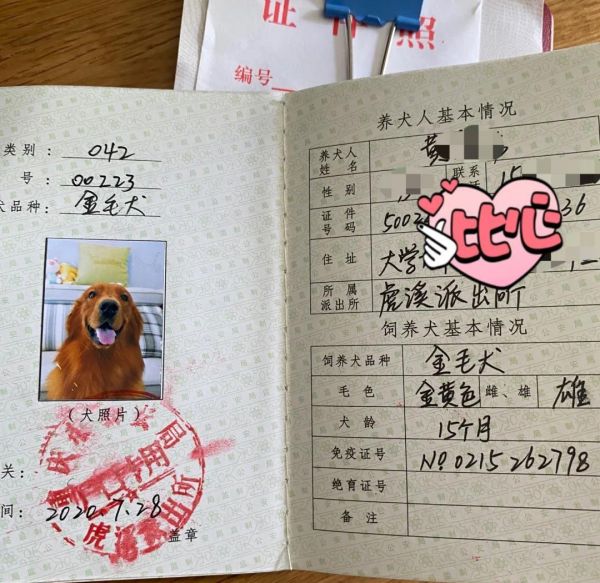 证 件 照
编号
类别: 042
号: 00223
犬品种: 金毛犬
(犬照片)
关:
间: 2020.7.28
虎溪派出所
盖章
养犬人基本情况
养犬人姓名 黄
联系
15
性别
证件号码 500
36
比心
住址 大学
所属派出所 虎溪派出所
饲养犬基本情况
饲养犬品种 金毛犬
毛色 金黄色 雌、雄 雄
犬龄 15个月
免疫证号 No.0215262798
绝育证号
备注